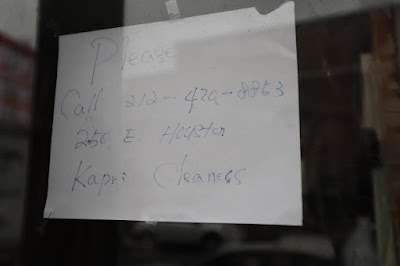 Please
Call 212-420-8853
250 E. Houston
Kapri Cleaners